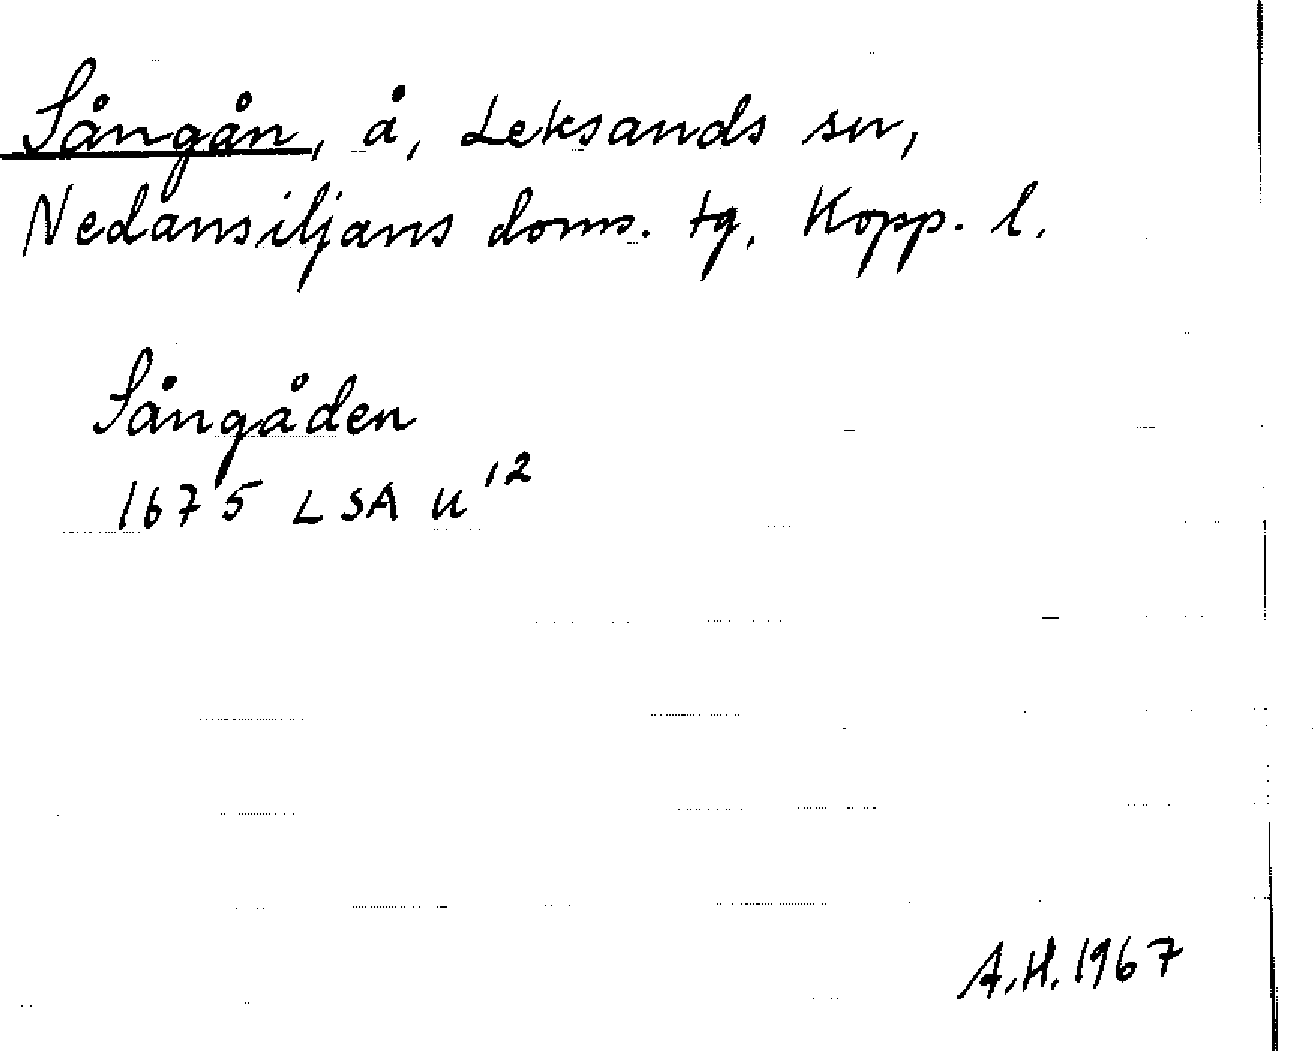 Sångån, å, Leksands sn,
Nedansiljans doms. tg, Kopp. l.
Sångåden
1675 LSA U¹²
A.H. 1967